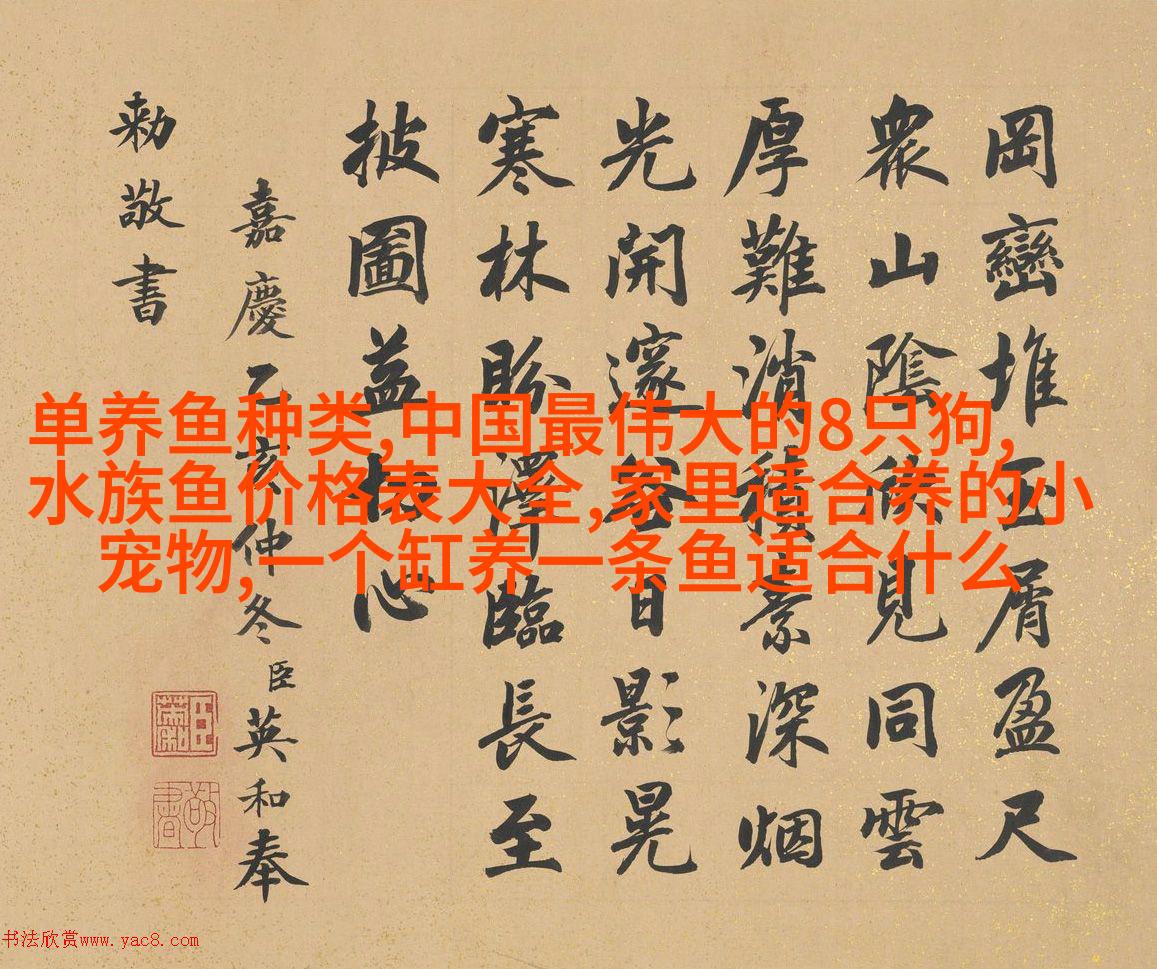 岡巒堆玉屑盈尺
衆山陰候見同雲
厚難消積素深烟
光開邃谷日影晃
寒林盼澤臨長至
披圖益心
嘉慶乙亥仲冬臣英和奉
勅敬書
单养鱼种类,中国最伟大的8只狗,
水族鱼价格表大全,家里适合养的小
宠物,一个缸养一条鱼适合什么
敬書
书法欣赏www.yac8.com